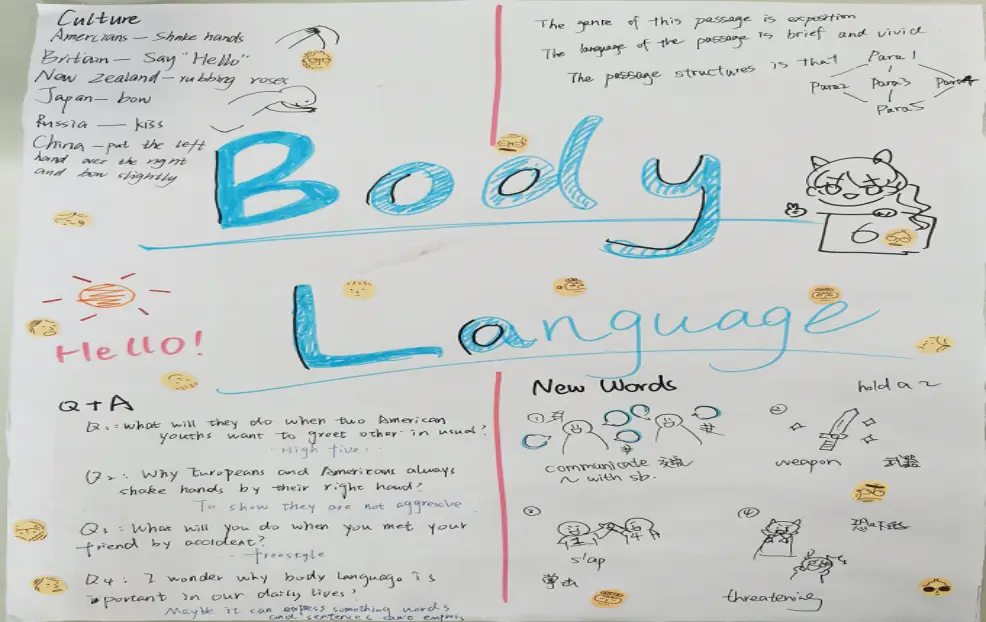 Culture
Amercians — Shake hands
Britian — Say "Hello"
New Zealand — rubbing roses
Japan — bow
Russia — kiss
China — put the left
hand over the right
and bow slightly
The genre of this passage is exposition
The language of the passage is brief and vivid
The passage structures is that
Para 1
Para2 Para3 Para4
Para5
Body
6
Language
Hello!
Q + A
Q1: What will they do when two American
youths want to greet other in usual?
High five
Q2: Why Europeans and Americans always
shake hands by their right hand?
To show they are not aggresive
Q3: What will you do when you met your
friend by accident?
freestyle
Q4: I wonder why body language is
portant in our daily lives?
Maybe it can express something words
and sentences don't express
New Words
hold a ~
①
communicate 交流
~ with sb.
②
weapon 武器
③
slap
掌击
④
threatening